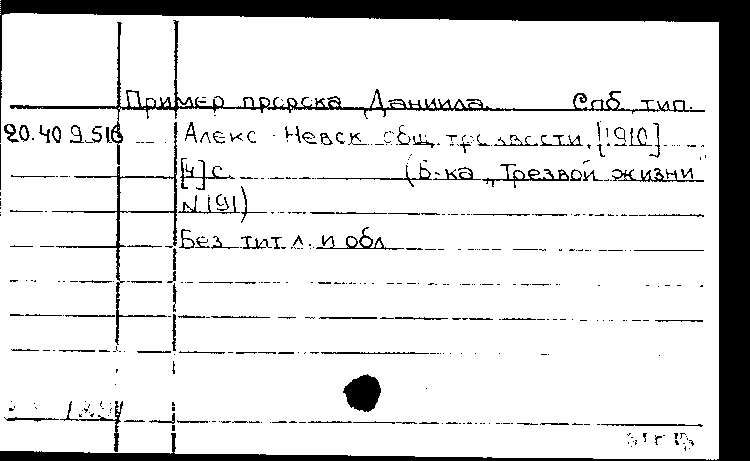 Пример пророка Даниила Спб, тип.
20.40 9.516 Алекс-Невск общ. трезвости, [1910]
[4] с. (Б-ка „Трезвой жизни
N 191)
Без тит л. и обл